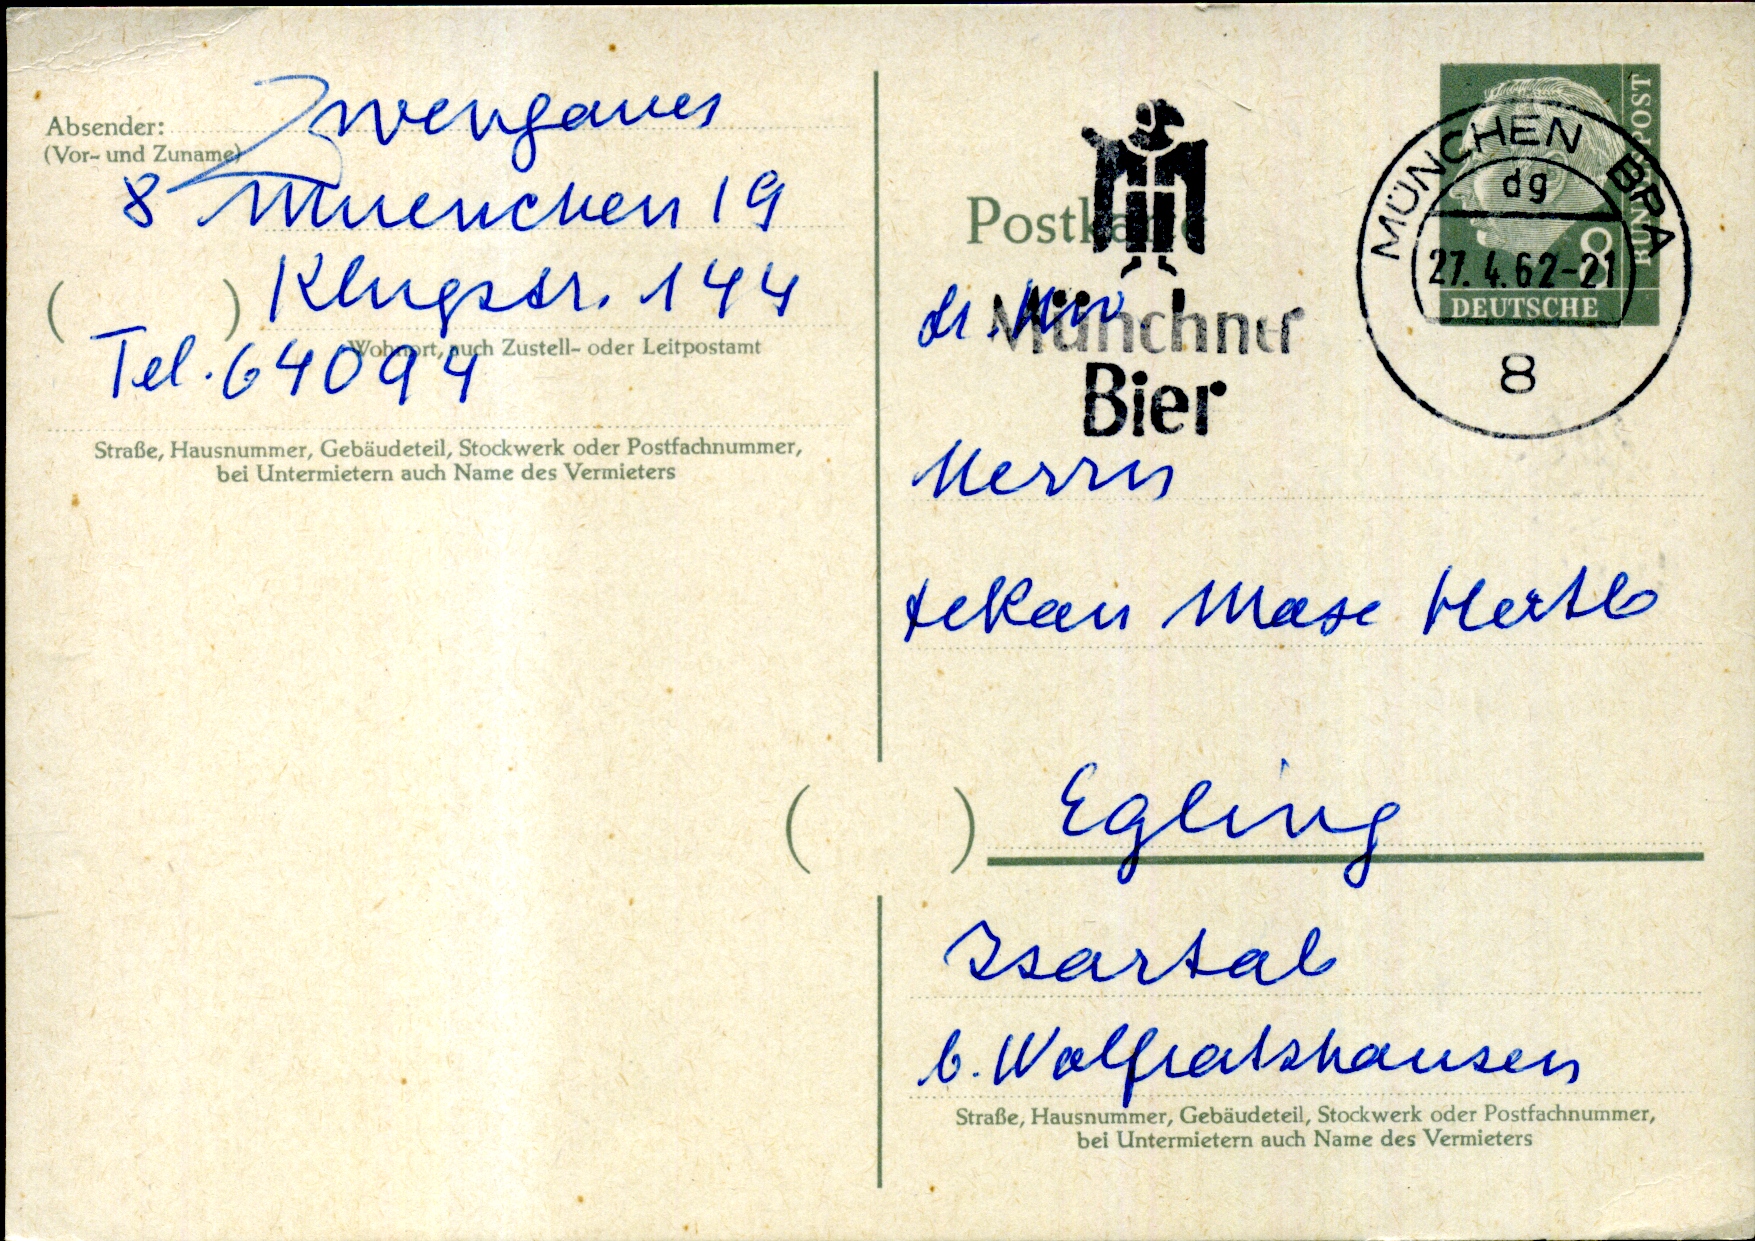 Absender:
(Vor- und Zuname)
Zwengauer
8 Muenchen 19
Klugstr. 144
( )
Wohnort, auch Zustell- oder Leitpostamt
Tel. 64094
Straße, Hausnummer, Gebäudeteil, Stockwerk oder Postfachnummer,
bei Untermietern auch Name des Vermieters
Postkarte
Münchner
Bier
MÜNCHEN BPA
dg
27. 4. 62-21
8
8
BUNDESPOST
DEUTSCHE
Herrn
dekan Hertl
( )
Egling
Isartal
b. Wolfratshausen
Straße, Hausnummer, Gebäudeteil, Stockwerk oder Postfachnummer,
bei Untermietern auch Name des Vermieters